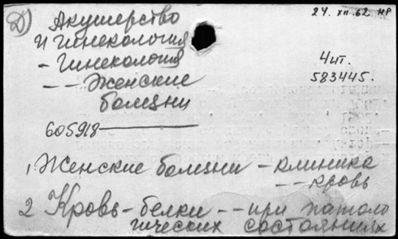 Д) Акушерство
24. XII. 62. НР
и гинекология
- Гинекология
4 шт.
-- Женские
583445.
болезни
605918
1, Женские болезни - клиника
-- кровь
2 Кровь - белки -- при патоло
гических состояниях